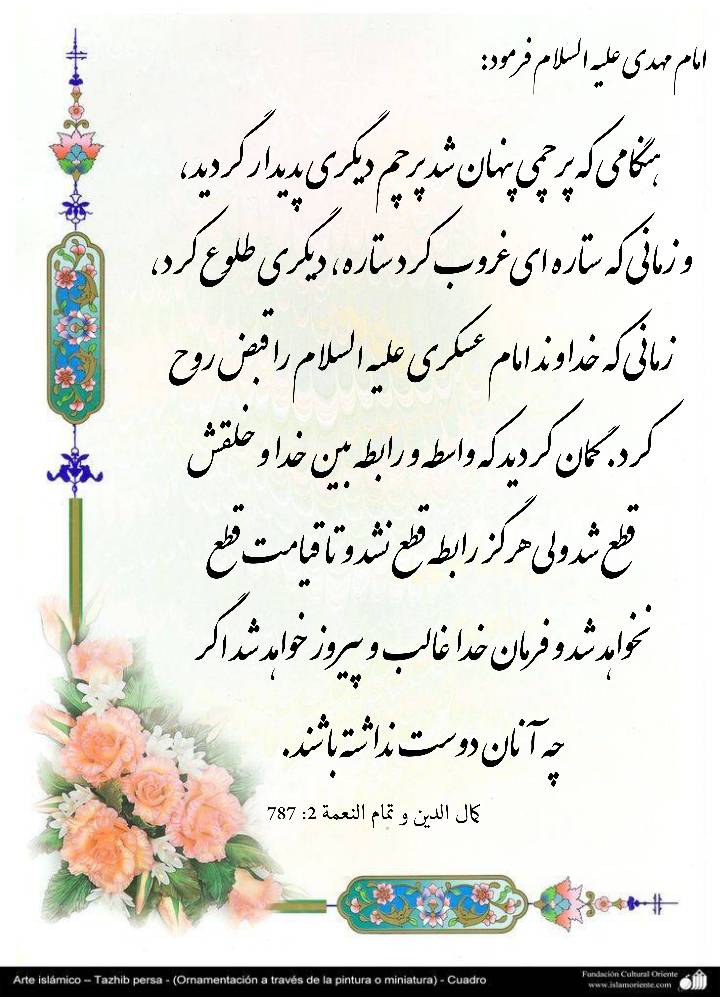 امام مهدی علیه السلام فرمود:
هنگامی که پرچمی پنهان شد پرچم دیگری پدیدار گردید،
و زمانی که ستاره ای غروب کرد ستاره، دیگری طلوع کرد،
زمانی که خداوند امام عسکری علیه السلام را قبض روح
کرد. گمان کردید که واسطه و رابطه بین خدا و خلقش
قطع شد ولی هرگز رابطه قطع نشد و تا قیامت قطع
نخواهد شد و فرمان خدا غالب و پیروز خواهد شد اگر
چه آنان دوست نداشته باشند.
کمال الدین و تمام النعمة 2: 787
Arte islámico – Tazhib persa - (Ornamentación a través de la pintura o miniatura) - Cuadro
Fundación Cultural Oriente
www.islamoriente.com